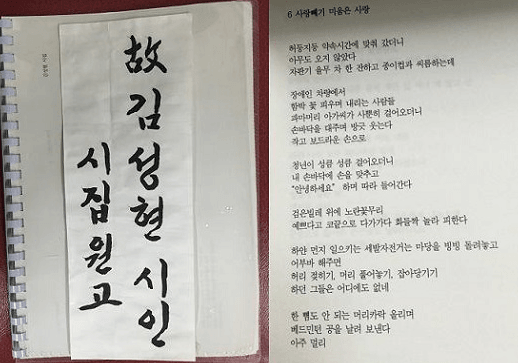 故김성현 시인
시집원고
6 사랑빼기 미움은 사랑
허둥지둥 약속시간에 맞춰 갔더니
아무도 오지 않았다
자판기 율무 차 한 잔하고 종이컵과 씨름하는데
장애인 차량에서
함박 꽃 피우며 내리는 사람들
파마머리 아가씨가 사뿐히 걸어오더니
손바닥을 대주며 방긋 웃는다
작고 보드라운 손으로
청년이 성큼 성큼 걸어오더니
내 손바닥에 손을 맞추고
"안녕하세요" 하며 따라 들어간다
검은빌레 위에 노란꽃무리
예쁘다고 코끝으로 다가가다 화들짝 놀라 피한다
하얀 먼지 일으키는 세발자전거는 마당을 빙빙 돌려놓고
어부바 해주면
허리 젖히기, 머리 풀어놓기, 잡아당기기
하던 그들은 어디에도 없네
한 뼘도 안 되는 머리카락 올리며
배드민턴 공을 날려 보낸다
아주 멀리